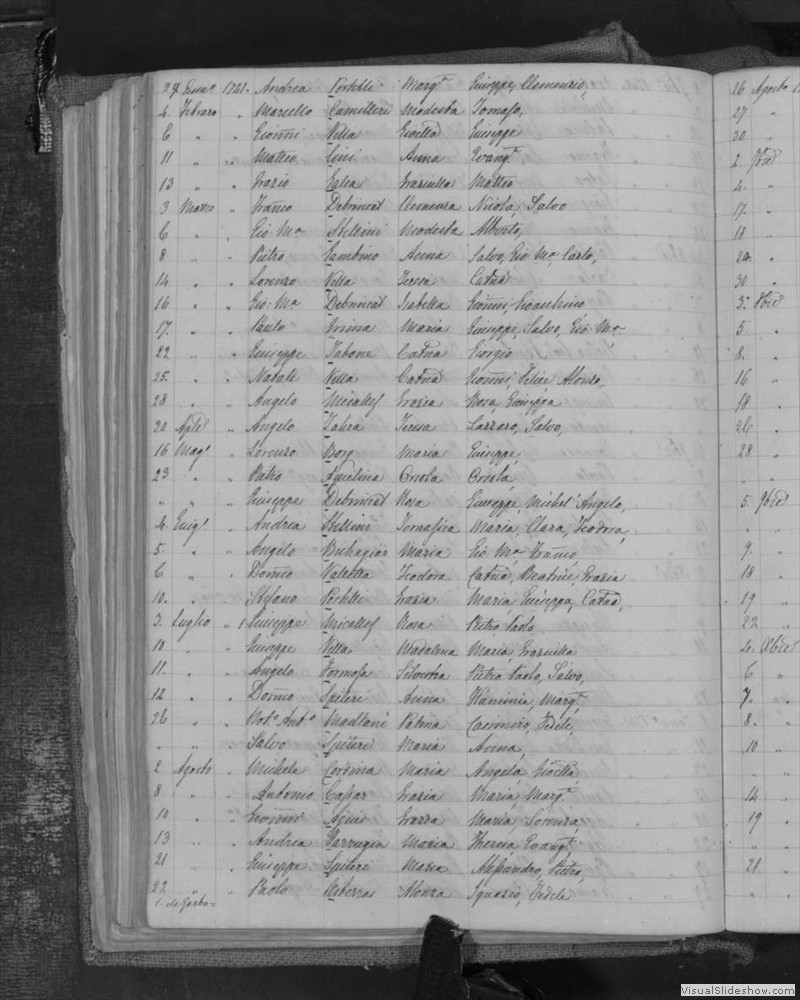 27 Genn.º 1741. Andrea Portelli Marg.ta Giuseppe, Clemenzio,
4. Febraro " Marcello Camilleri Modesta Tomaso,
6 " " Gionni Vella Gioella Giuseppe
11 " " Matteo Cini Anna Evang.ta
13 " " Grazio Galea Graziulla Matteo
3 Marzo " Franco Debrincat Clemenza Nicola, Salvo
6 " " Gio: M.a Stellini Modesta Alberto,
8 " " Pietro Tambino Anna Salvo, Gio M.a Carlo,
14 " " Lorenzo Vella Teresa Catna
16 " " Gio: M.a Debrincat Isabella Gionni,
17. " " Paulo Maria Giuseppe, Salvo, Gio: M.a
22 " " Giuseppe Tabone Catna Giorgio
25. " " Natale Vella Catna Gionni, Felice Alonso,
28 " " Angelo Micallef Grazia Rosa, Giuseppa
20 Aple " Angelo Zahra Teresa Lazzaro, Salvo,
16 Mag.º " Lorenzo Borg Maria Giuseppe
23 " " Pietro Orsola Orsola
" " " Giuseppe Debrincat Rosa Giuseppe Michel' Angelo,
4. Giug.º " Andrea Stellini Tomasica Maria, Clara, Teodora,
5. " " Angelo Buhagiar Maria Gio M.a Franco,
6 " " Domco Valletta Teodora Catna, Beatrice, Grazia
10. " " Stefano Portelli Grazia Maria Giuseppa, Catna,
3. Luglio " Giuseppe Micallef Rosa Pietro Paolo
10 " " Giuseppe Vella Madalena Maria, Graziulla
11. " " Angelo Formosa Silvestra Pietro Paolo, Salvo,
12 " " Domco Spiteri Anna Flaminia, Marg.ta
26 " " Not.º Ant.º Palma Casimiro, Fedele,
" " " Salvo Spiteri Maria Anna,
2 Agosto " Michele Cordina Maria Angela, Gioella
8 " " Antonio Caspar Grazia Maria, Marg.ta
10 " " Gionni Agius Grazia Maria, Lorenza,
13 " " Andrea Farrugia Maria Theresa Evang.ta
21 " " Giuseppe Spiteri Maria Alessandro, Pietro,
22 " " Paolo Alonza Ignazio, Fedele
26 Agosto
27 "
30 "
2. 7bre
4. "
17. "
18 "
24. "
30 "
3. 8bre
5 "
8. "
16 "
18 "
26 "
28 "
" "
5. 9bre
" "
9. "
18 "
19 "
22 "
4. Xbre
6 "
7. "
8. "
10 "
" "
14 "
19 "
" "
21. "
" "
VisualSlideshow.com